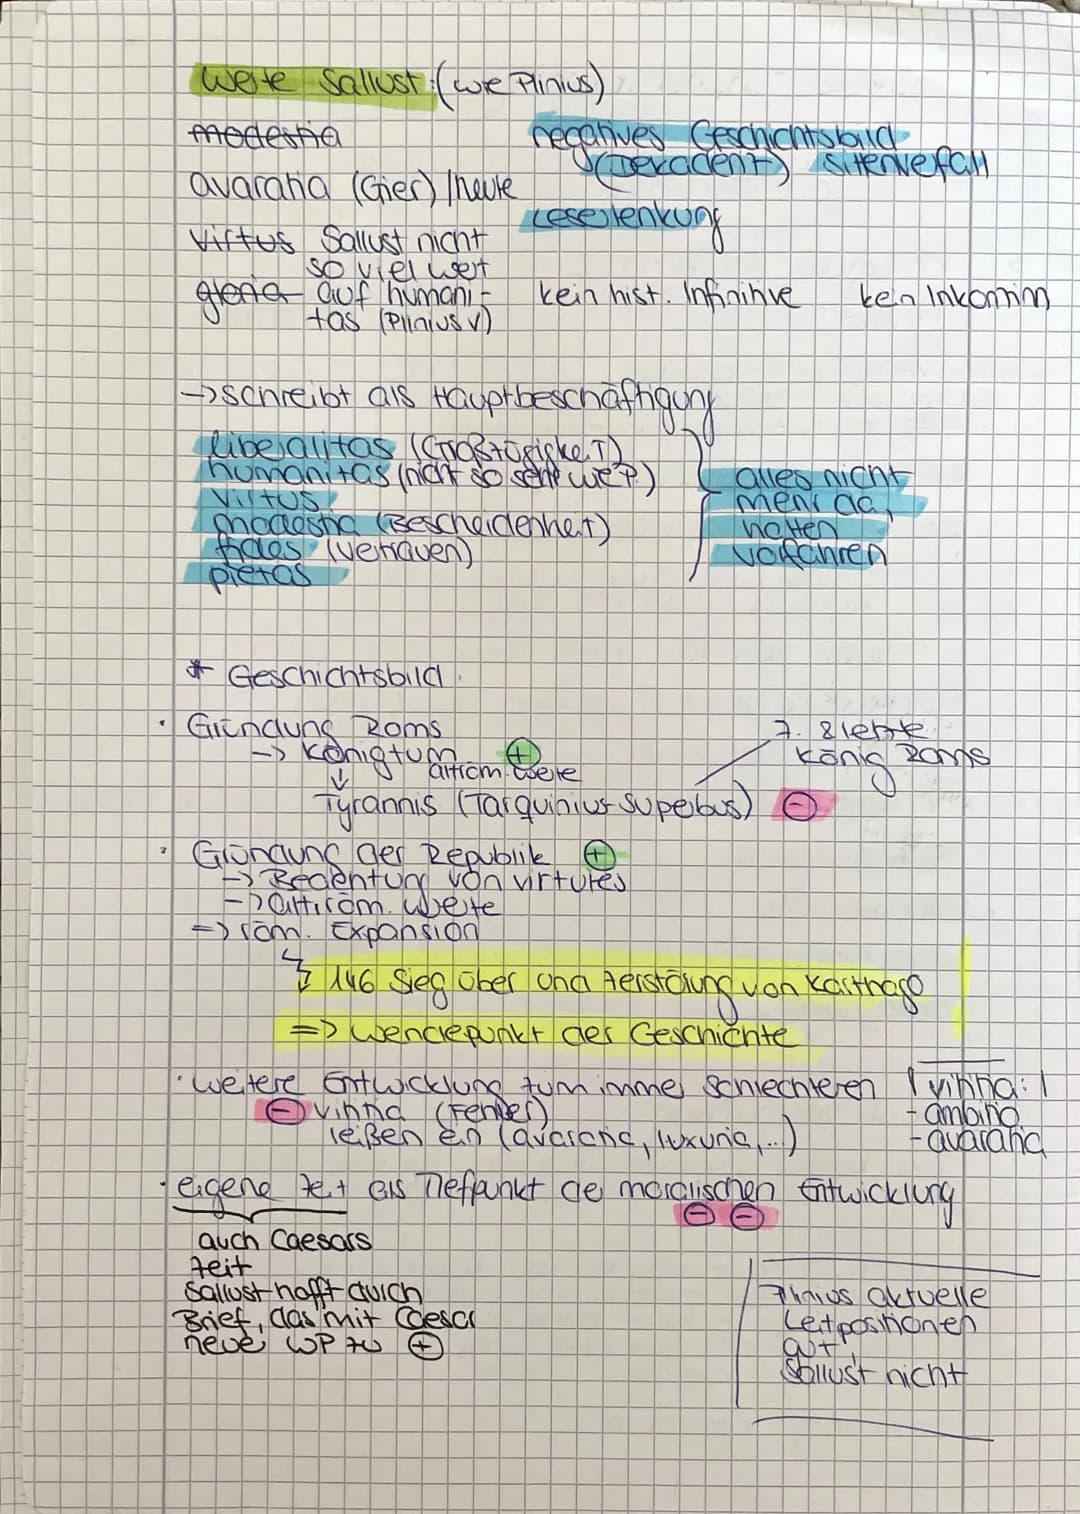 Werte Sallust: (wie Plinius)
modestia
negatives Geschichtsbild
(Dekadent) Sittenverfall
avaratia (Gier) /heute
Leserlenkung
virtus Sallust nicht
so viel wert
gloria auf humani-
tas (Plinius v)
kein hist. Infinitive kein Inkonzinn
-> schreibt als Hauptbeschäftigung
liberalitas (Großzügigkeit)
humanitas (nicht so sehr we?)
virtus
modestia (Bescheidenheit)
fides (Vertrauen)
pietas
alles nicht
mehr da,
hatten
Vorfahren
* Geschichtsbild
• Gründung Roms
-> Königtum +
altröm. Werte
7. & letzte
König Roms
Tyrannis (Tarquinius Superbus) -
• Gründung der Republik +
-> Bedeutung von virtutes
-> altröm. Werte
=> röm. Expansion
146 Sieg über und Zerstörung von Karthago !
=> Wendepunkt der Geschichte
• weitere Entwicklung zum immer Schlechteren
- vitia (Fehler)
reißen ein (avaratia, luxuria, ...)
! vitia: !
- ambitio
- avaratia
• eigene Zeit als Tiefpunkt der moralischen Entwicklung
- -
auch Caesars
Zeit
Sallust hofft durch
Brief, das mit Caesar
neue WP zu +
Plinius aktuelle
Leitpositionen
gut,
Sallust nicht